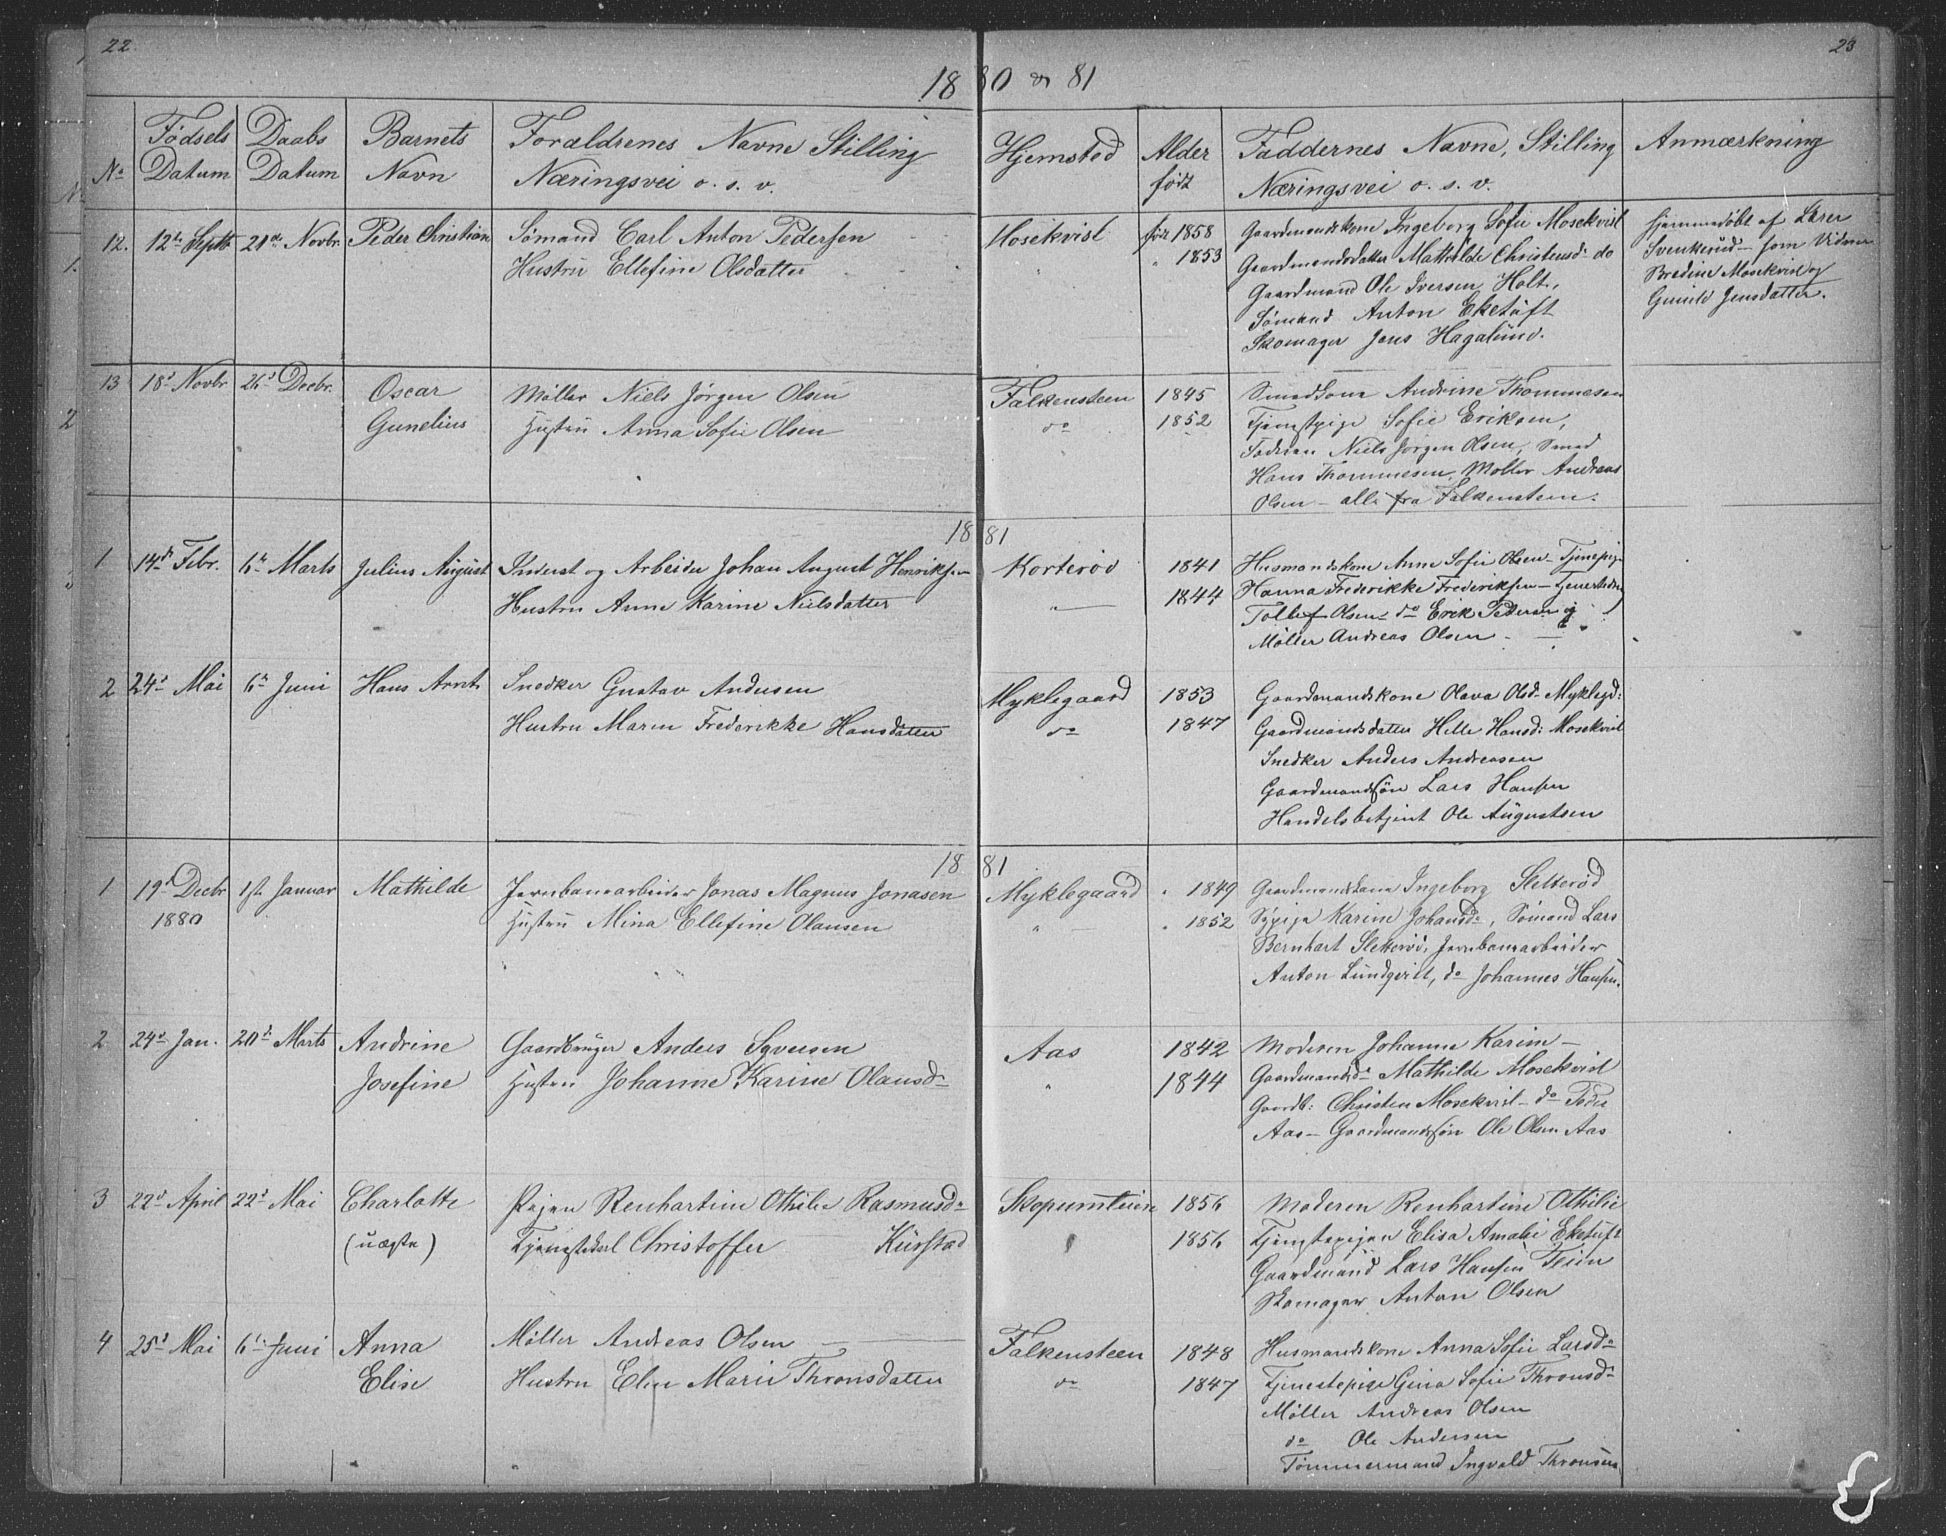 22
23
1880 & 81
No
Fødsels Datum
Daabs Datum
Barnets Navn
Forældrenes Navne Stilling
Næringsvei o. s. v.
Hjemsted
Alder født
Faddernes Navne, Stilling
Næringsvei o. s. v.
Anmærkning
12. 12te Septbr 21de Novbr. Peder Christian
Sømand Carl Anton Pedersen
Hustru Ellefine Olsdatter
Mosekvist
født 1858
" 1853
Gaardmandskone Ingeborg Sofie Mosekvist
Gaardmandsdatter Mathilde Christensd: do
Gaardmand Ole Iversen Holt,
Sømand Anton Eketuft
Skomager Jens Hagalund.
Hjemmedøbt af Lærer
Svenkerud – som Vidner
Bredine Mosekvist og
Gunild Jensdatter.
13 18d Novbr 26d Decbr.
Oscar
Gunelius
Møller Niels Jørgen Olsen
Hustru Anna Sofie Olsen
Falkensteen
do
1845
1852
Smedkone Andrine Thommesen
Tjenestpige Sofie Eriksen,
Faderen Niels Jørgen Olsen, Smed
Hans Thommesen, Møller Andreas
Olsen – alle fra Falkensteen.
1881
1 14de Febr. 6te Marts Julius August
Inderst og Arbeider Johan August Henriksen
Hustru Anne Karine Nielsdatter
Korterød
"
1841
1844
Husmandskone Anne Sofie Olsen – Tjenepige
Hanna Frederikke Frederiksen –
Tollef Olsen – do Erik Pedersen og
Møller Andreas Olsen
2 24d Mai 6te Juni Hans Arnt
Snedker Gustav Andersen
Hustru Maren Frederikke Hansdatter
Myklegaard
do
1853
1847
Gaardmandskone Olava Olsd – Myklegd:
Gaardmandsdatter Helle Hansd: Mosekvist
Snedker Anders Andreasen
Gaardmandssøn Lars Hansen
Handelsbetjent Ole Augustsen
1881
1 19d Decbr 1880 1ste Januar Mathilde
Jernbanearbeider Jonas Magnus Jonasen
Hustru Mina Ellefine Olausen
Myklegaard
"
" 1849
" 1852
Gaardmandskone Ingeborg Sletterød
Sypige Karine Johansd., Sømand Lars
Bernhart Sletterød, Jernbanearbeider
Anton Lundqvist, do Johannes Hansen.
2 24d Jan. 20d Marts
Andrine
Josefine
Gaardbruger Anders Syversen
Hustru Johanne Karine Olausd
Aas
"
1842
1844
Moderen Johanne Karine –
Gaardmandsd Mathilde Mosekvist
Gaardb: Christen Mosekvist – do Peder
Aas – Gaardmandssøn Ole Olsen Aas
3 22d April 22d Mai
Charlotte
(uægte)
Pigen Renhartine Othilie Rasmusd
Tjenestekarl Christoffer Kurstad
1856
1856
Moderen Renhartine Othilie
Tjenestepigen Elisa Amalie Eketuft
Gaardmand Lars Hansen Teien
Skomager Anton Olsen
4 25d Mai 6te Juni
Anna
Elise
Møller Andreas Olsen
Hustru Elen Marie Thronsdatter
Falkensteen
do
1848
1847
Husmandskone Anna Sofie Larsd
Tjenestepige Gina Sofie Thronsd
Møller Andreas Olsen
do Ole Andersen
Tømmermand Ingvald Thronsen